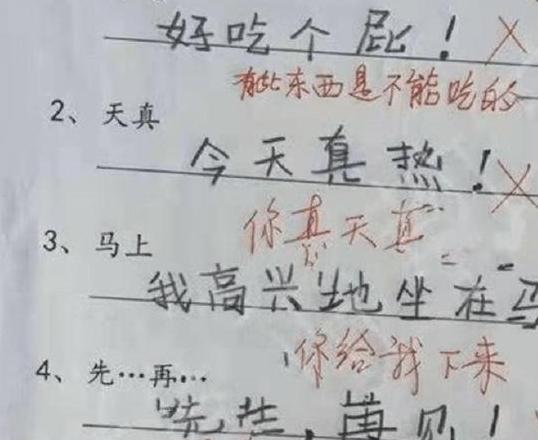 好吃个屁！
有些东西是不能吃的
2、天真
今天真热！
你真天真
3、马上
我高兴地坐在马
你给我下来
4、先…再…
先生，再见！